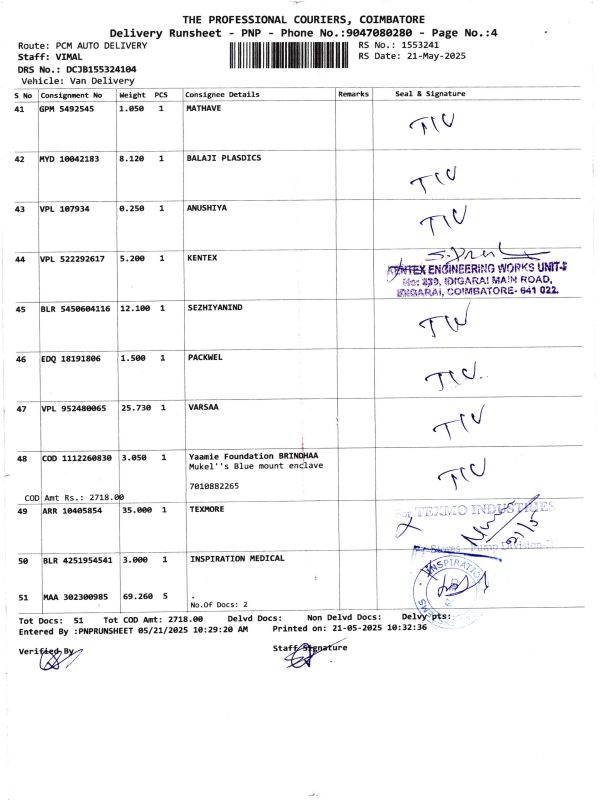 THE PROFESSIONAL COURIERS, COIMBATORE
Delivery Runsheet - PNP - Phone No.:9047080280 - Page No.:4
Route: PCM AUTO DELIVERY
RS No.: 1553241
Staff: VIMAL
RS Date: 21-May-2025
DRS No.: DCJB155324104
Vehicle: Van Delivery
S No Consignment No Weight PCS Consignee Details Remarks Seal & Signature
41 GPM 5492545 1.050 1 MATHAVE
42 MYD 10042183 8.120 1 BALAJI PLASDICS
43 VPL 107934 0.250 1 ANUSHIYA
44 VPL 522292617 5.200 1 KENTEX
KENTEX ENGINEERING WORKS UNIT-
No: 239, IDIGARAI MAIN ROAD,
IDIGARAI, COIMBATORE- 641 022.
45 BLR 5450604116 12.100 1 SEZHIYANIND
46 EDQ 18191806 1.500 1 PACKWEL
47 VPL 952480065 25.730 1 VARSAA
48 COD 1112260830 3.050 1 Yaamie Foundation BRINDHAA
Mukel''s Blue mount enclave
7010882265
COD Amt Rs.: 2718.00
49 ARR 10405854 35.000 1 TEXMORE
For TEXMO INDUSTRIES
Stores - Pump Division-
50 BLR 4251954541 3.000 1 INSPIRATION MEDICAL
INSPIRATION
51 MAA 302300985 69.260 5 .
No.Of Docs: 2
Tot Docs: 51 Tot COD Amt: 2718.00 Delvd Docs: Non Delvd Docs: Delvy pts:
Entered By :PNPRUNSHEET 05/21/2025 10:29:20 AM Printed on: 21-05-2025 10:32:36
Verified By
Staff Signature